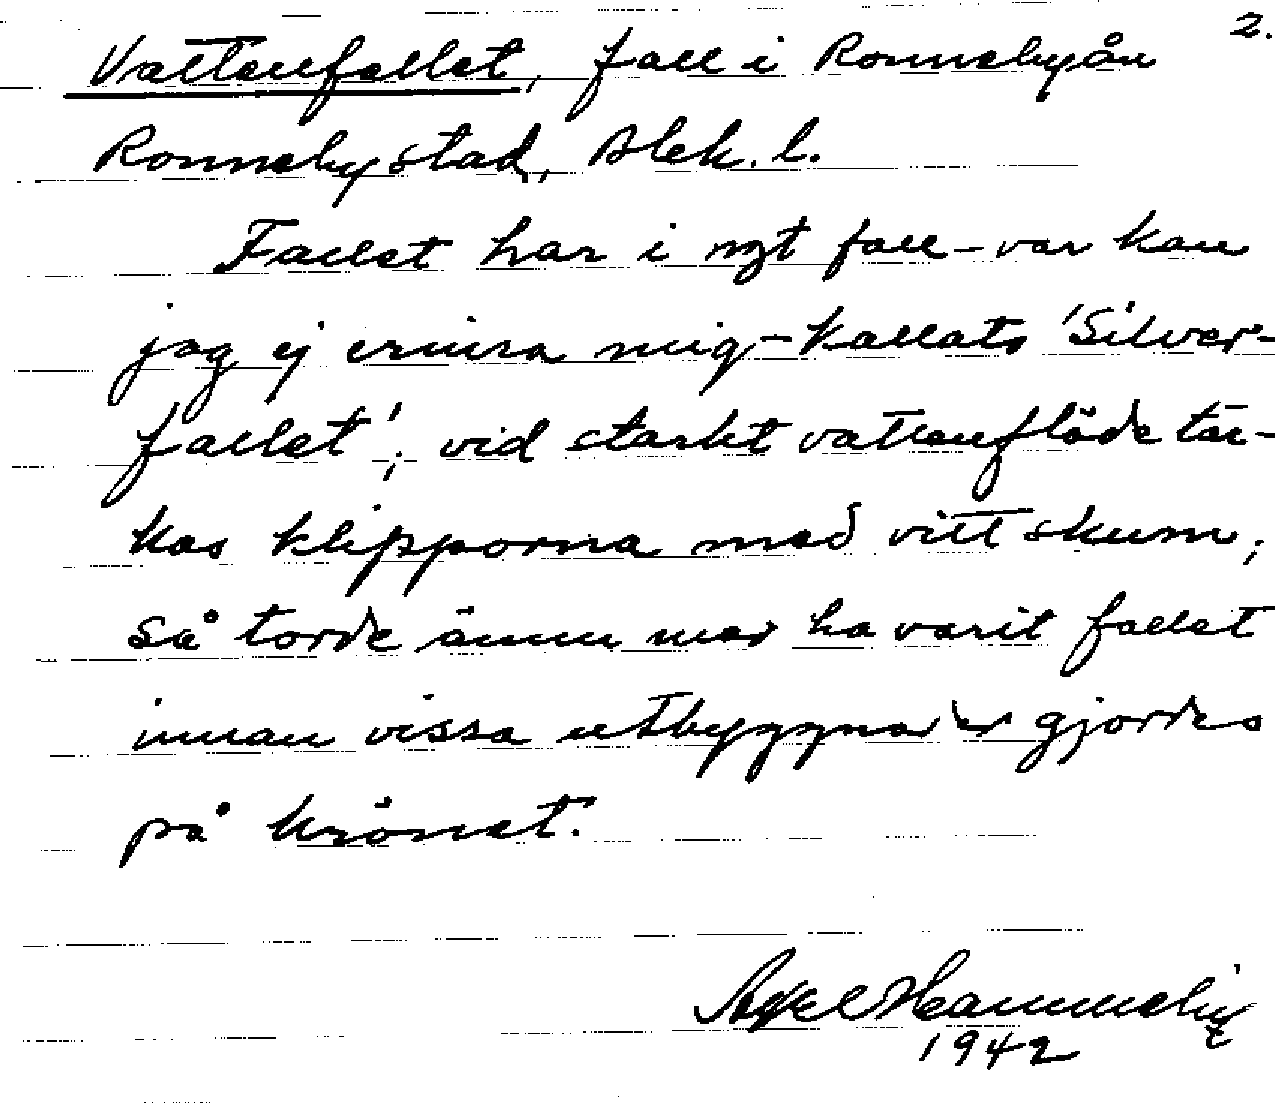 2.
Vattenfallet, fall i Ronnebyån
Ronneby stad, Blek. l.
Fallet har i ngt fall – var kan
jag ej erinra mig – kallats 'Silver-
fallet'; vid starkt vattenflöde täc-
kas klipporna med vitt skum,
så torde ännu mer ha varit fallet
innan vissa utbyggnader gjordes
på krönet.
Axel
1942